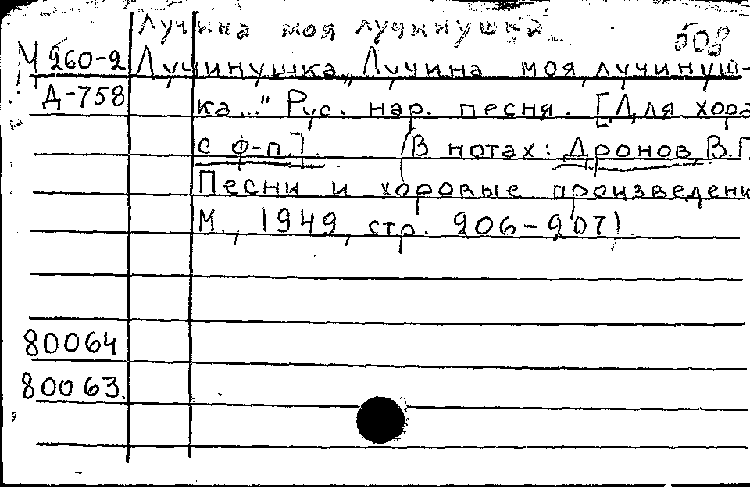 Лучина моя лучинушка
508
Ч 260-2 Лучинушка „Лучина моя, лучинуш-
Д-758 ка..." Рус. нар. песня. [Для хора
с ф-п.] (В нотах: Дронов В.П
Песни и хоровые произведени
М., 1949, стр. 206-207)
80064
80063.